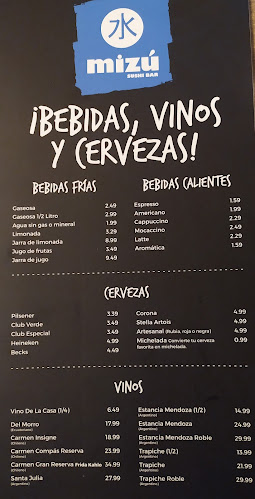 水
mizú
SUSHI BAR
¡BEBIDAS, VINOS
Y CERVEZAS!
BEBIDAS FRÍAS
Gaseosa 2.49
Gaseosa 1/2 Litro 2.99
Agua sin gas o mineral 1.99
Limonada 3.29
Jarra de limonada 8.99
Jugo de frutas 3.49
Jarra de jugo 9.49
BEBIDAS CALIENTES
Espresso 1.59
Americano 1.99
Cappuccino 2.29
Mocaccino 2.49
Latte 2.29
Aromática 1.59
CERVEZAS
Pilsener 3.39
Club Verde 3.49
Club Especial 3.49
Heineken 4.99
Becks 4.49
Corona 4.99
Stella Artois 4.99
Artesanal (Rubia, roja o negra) 4.99
Michelada Convierte tu cerveza 0.99
favorita en michelada.
VINOS
Vino De La Casa (1/4) 6.49
Del Morro 17.99
(Ecuatoriano)
Carmen Insigne 18.99
(Chileno)
Carmen Compás Reserva 23.99
(Chileno)
Carmen Gran Reserva Frida Kahlo 34.99
(Chileno)
Santa Julia 27.99
(Argentino)
Estancia Mendoza (1/2) 14.99
(Argentino)
Estancia Mendoza 24.99
(Argentino)
Estancia Mendoza Roble 29.99
(Argentino)
Trapiche (1/2) 13.99
(Argentino)
Trapiche 21.99
(Argentino)
Trapiche Roble 29.99
(Argentino)